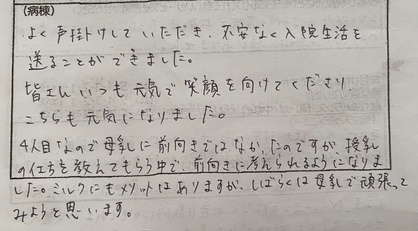 (病棟)
よく声掛けしていただき、不安なく入院生活を
送ることができました。
皆さんいつも元気で笑顔を向けてくださり
こちらも元気になりました。
4人目なので母乳に前向きではなかったのですが、授乳
の仕方を教えてもらう中で、前向きに考えられるようになりま
した。ミルクにもメリットはありますが、しばらくは母乳で頑張って
みようと思います。